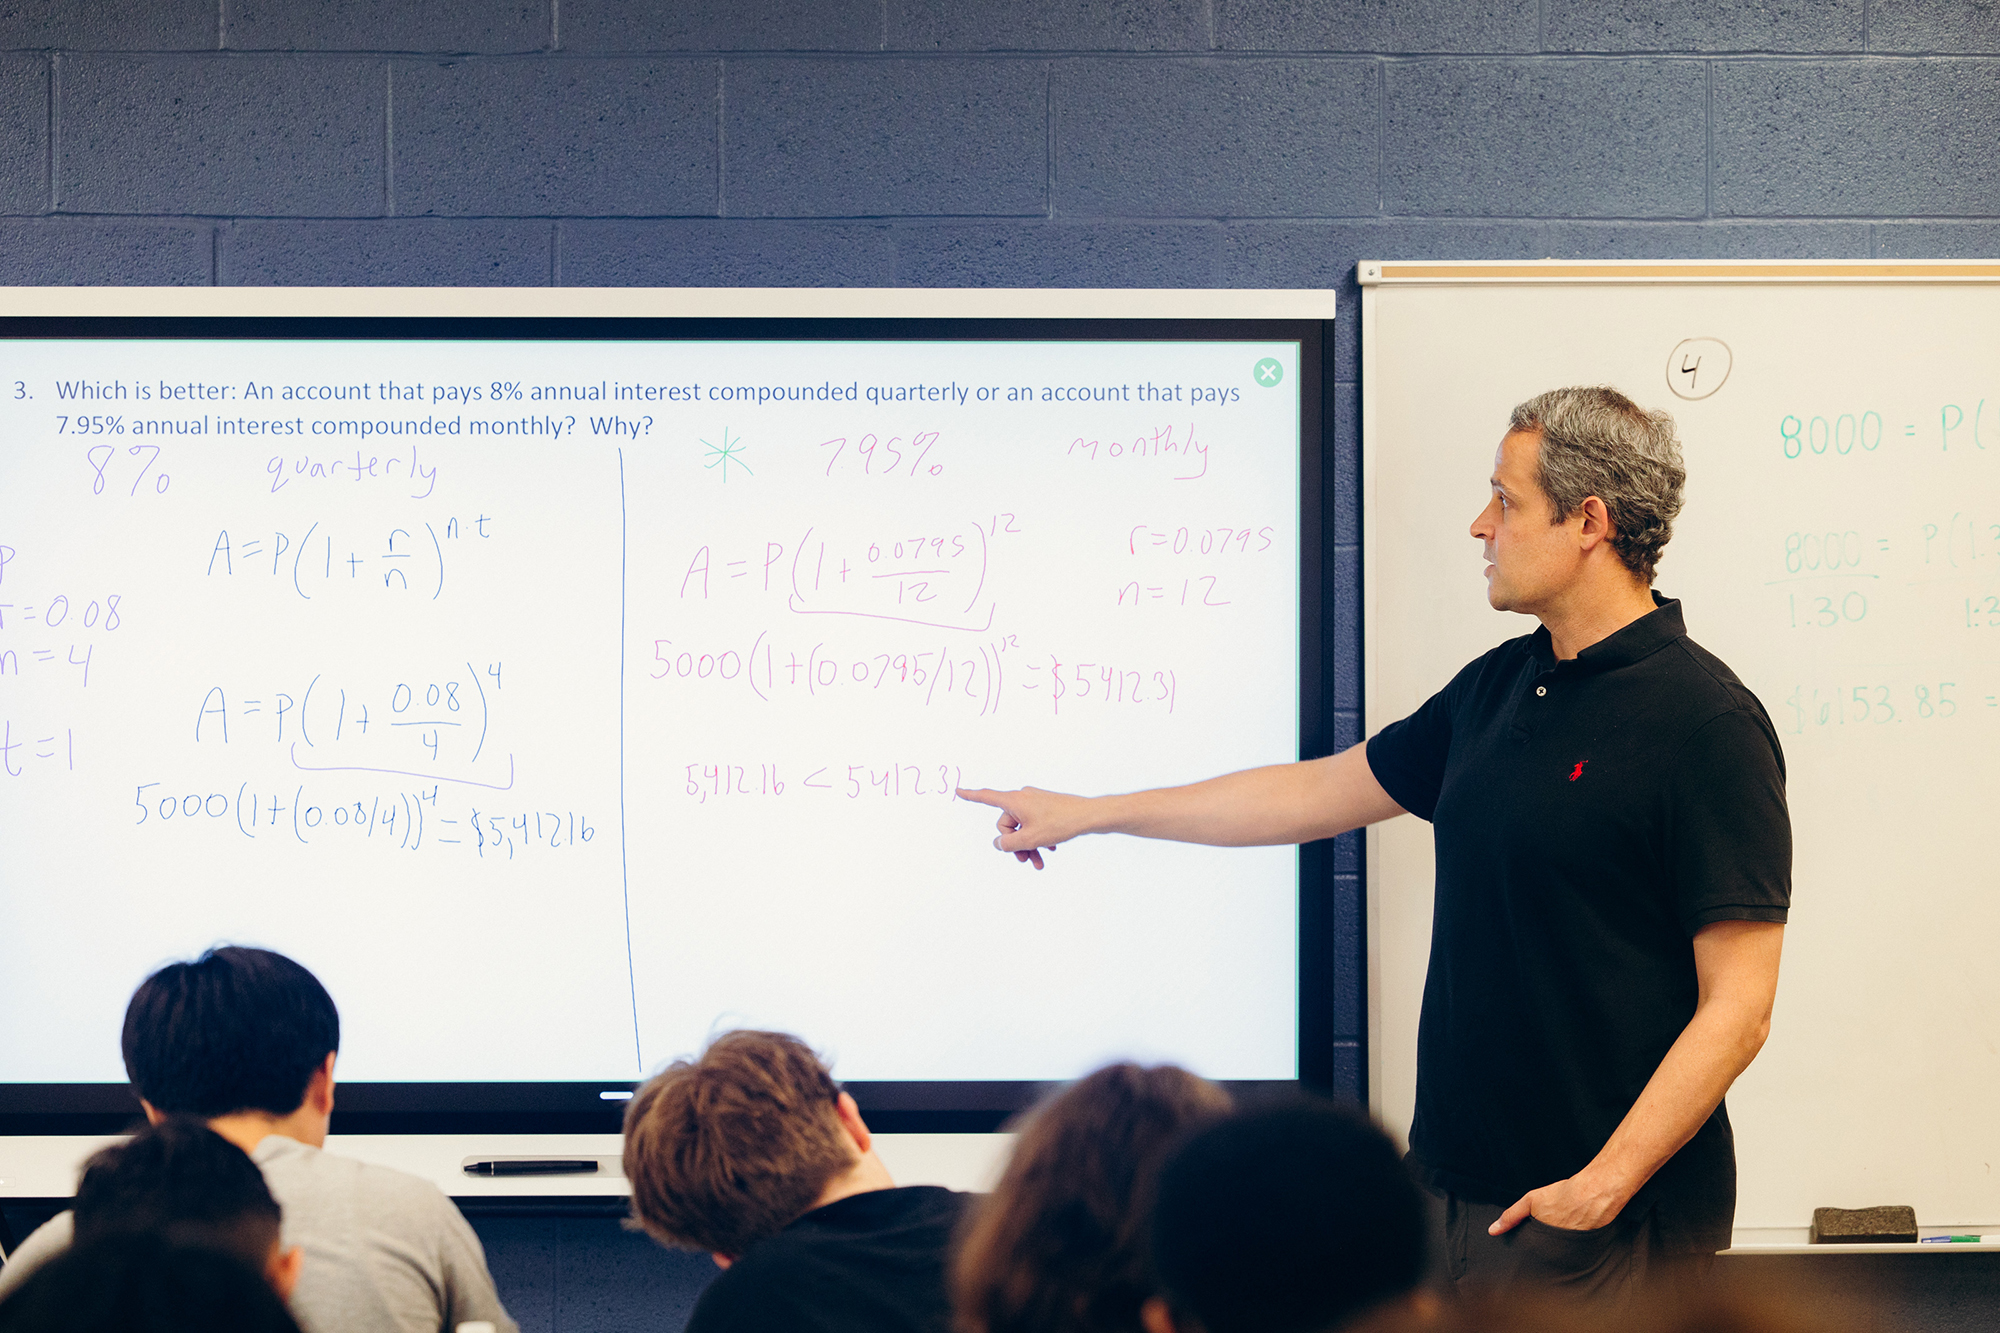 3. Which is better: An account that pays 8% annual interest compounded quarterly or an account that pays
7.95% annual interest compounded monthly? Why?
8% quarterly
A=P(1+r/n)^n·t
r=0.08
n=4
A=P(1+0.08/4)^4
t=1
5000(1+(0.08/4))^4=$5,412.16
* 7.95% monthly
A=P(1+0.0795/12)^12
r=0.0795
n=12
5000(1+(0.0795/12))^12=$5412.31
5,412.16 < 5412.31
4
8000 = P(
8000 = P(1.3
1.30 1.3
$6153.85 =